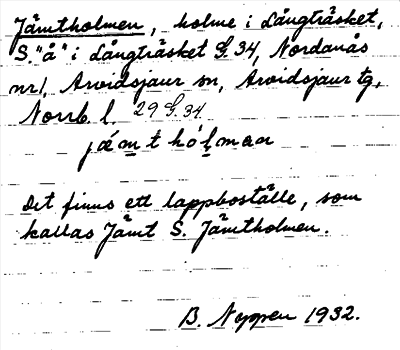 Jämtholmen, holme i Långträsket,
S. "å" i Långträsket S. 34, Nordanås
nr 1, Arvidsjaur sn, Arvidsjaur tg,
Norrb. l. 29 S. 34
jämt hólman
Det finns ett lappboställe, som
kallas Jämt S. Jämtholmen.
B. Nyppen 1932.